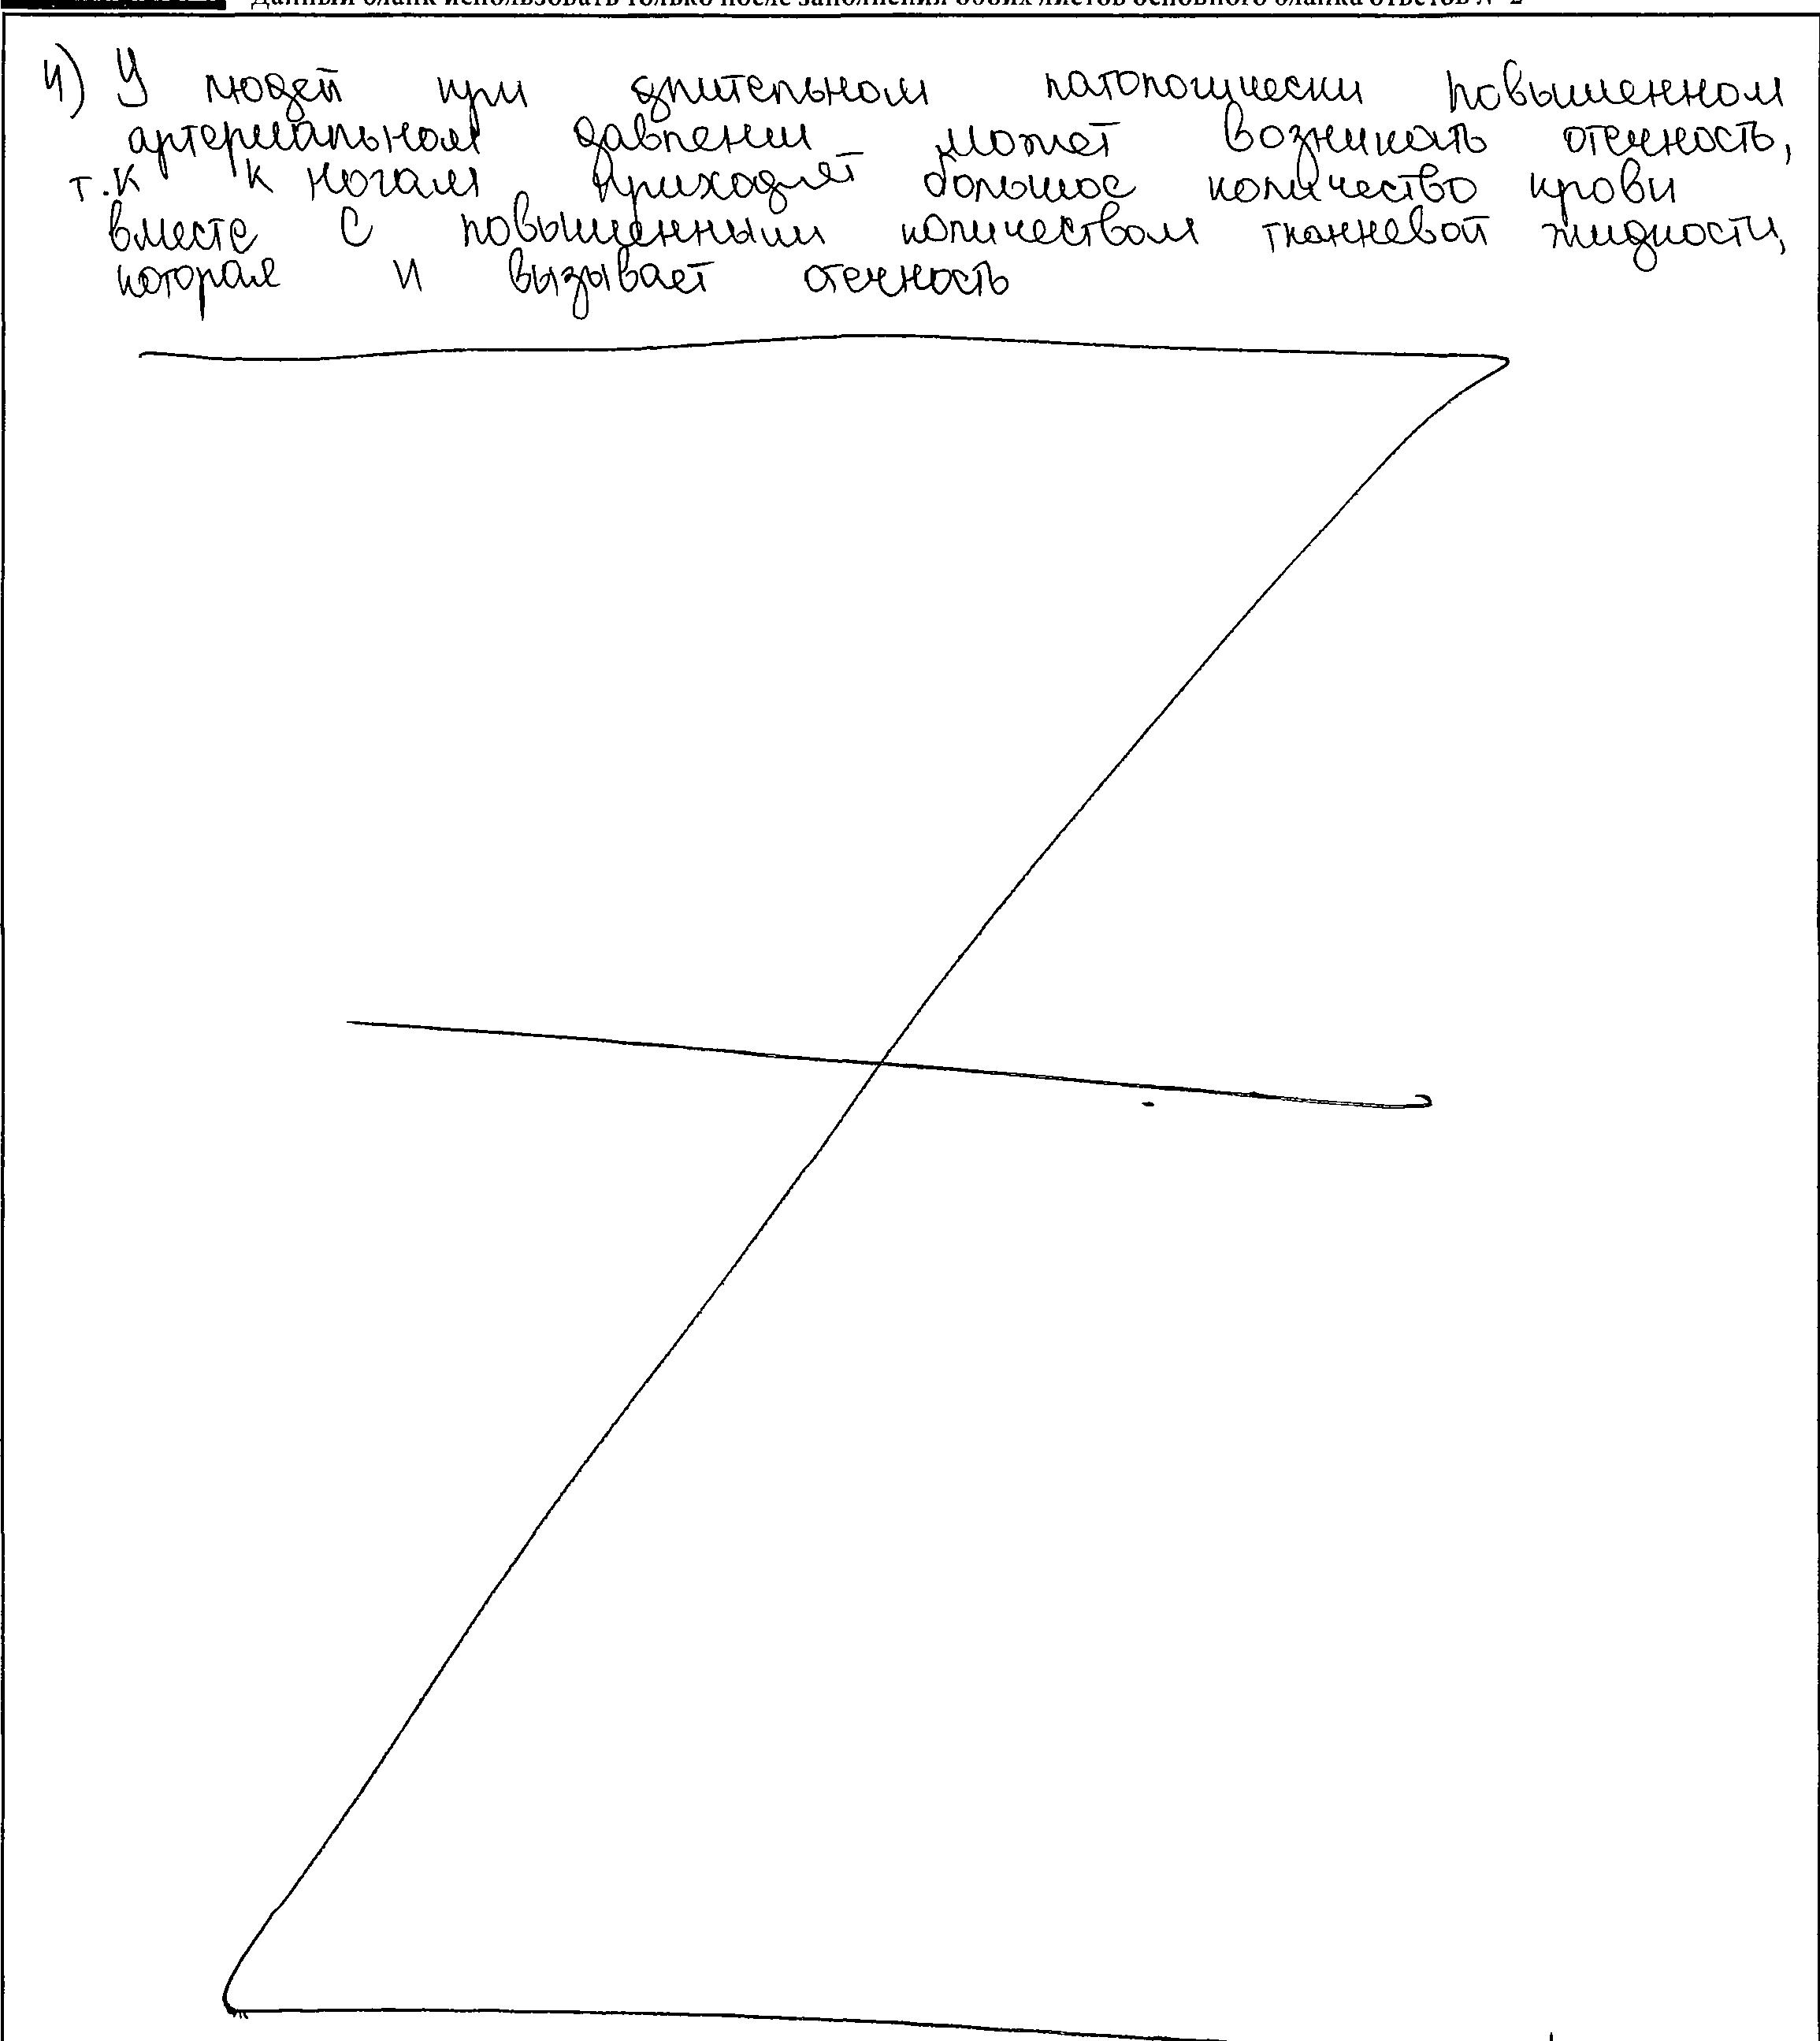 Данный бланк использовать только после заполнения обоих листов основного бланка ответов № 2
4) У людей при длительном патологически повышенном
артериальном давлении может возникать отечность,
т.к к ногам приходят большое количество крови
вместе с повышенными количеством тканневой жидкости,
которая и вызывает отечность